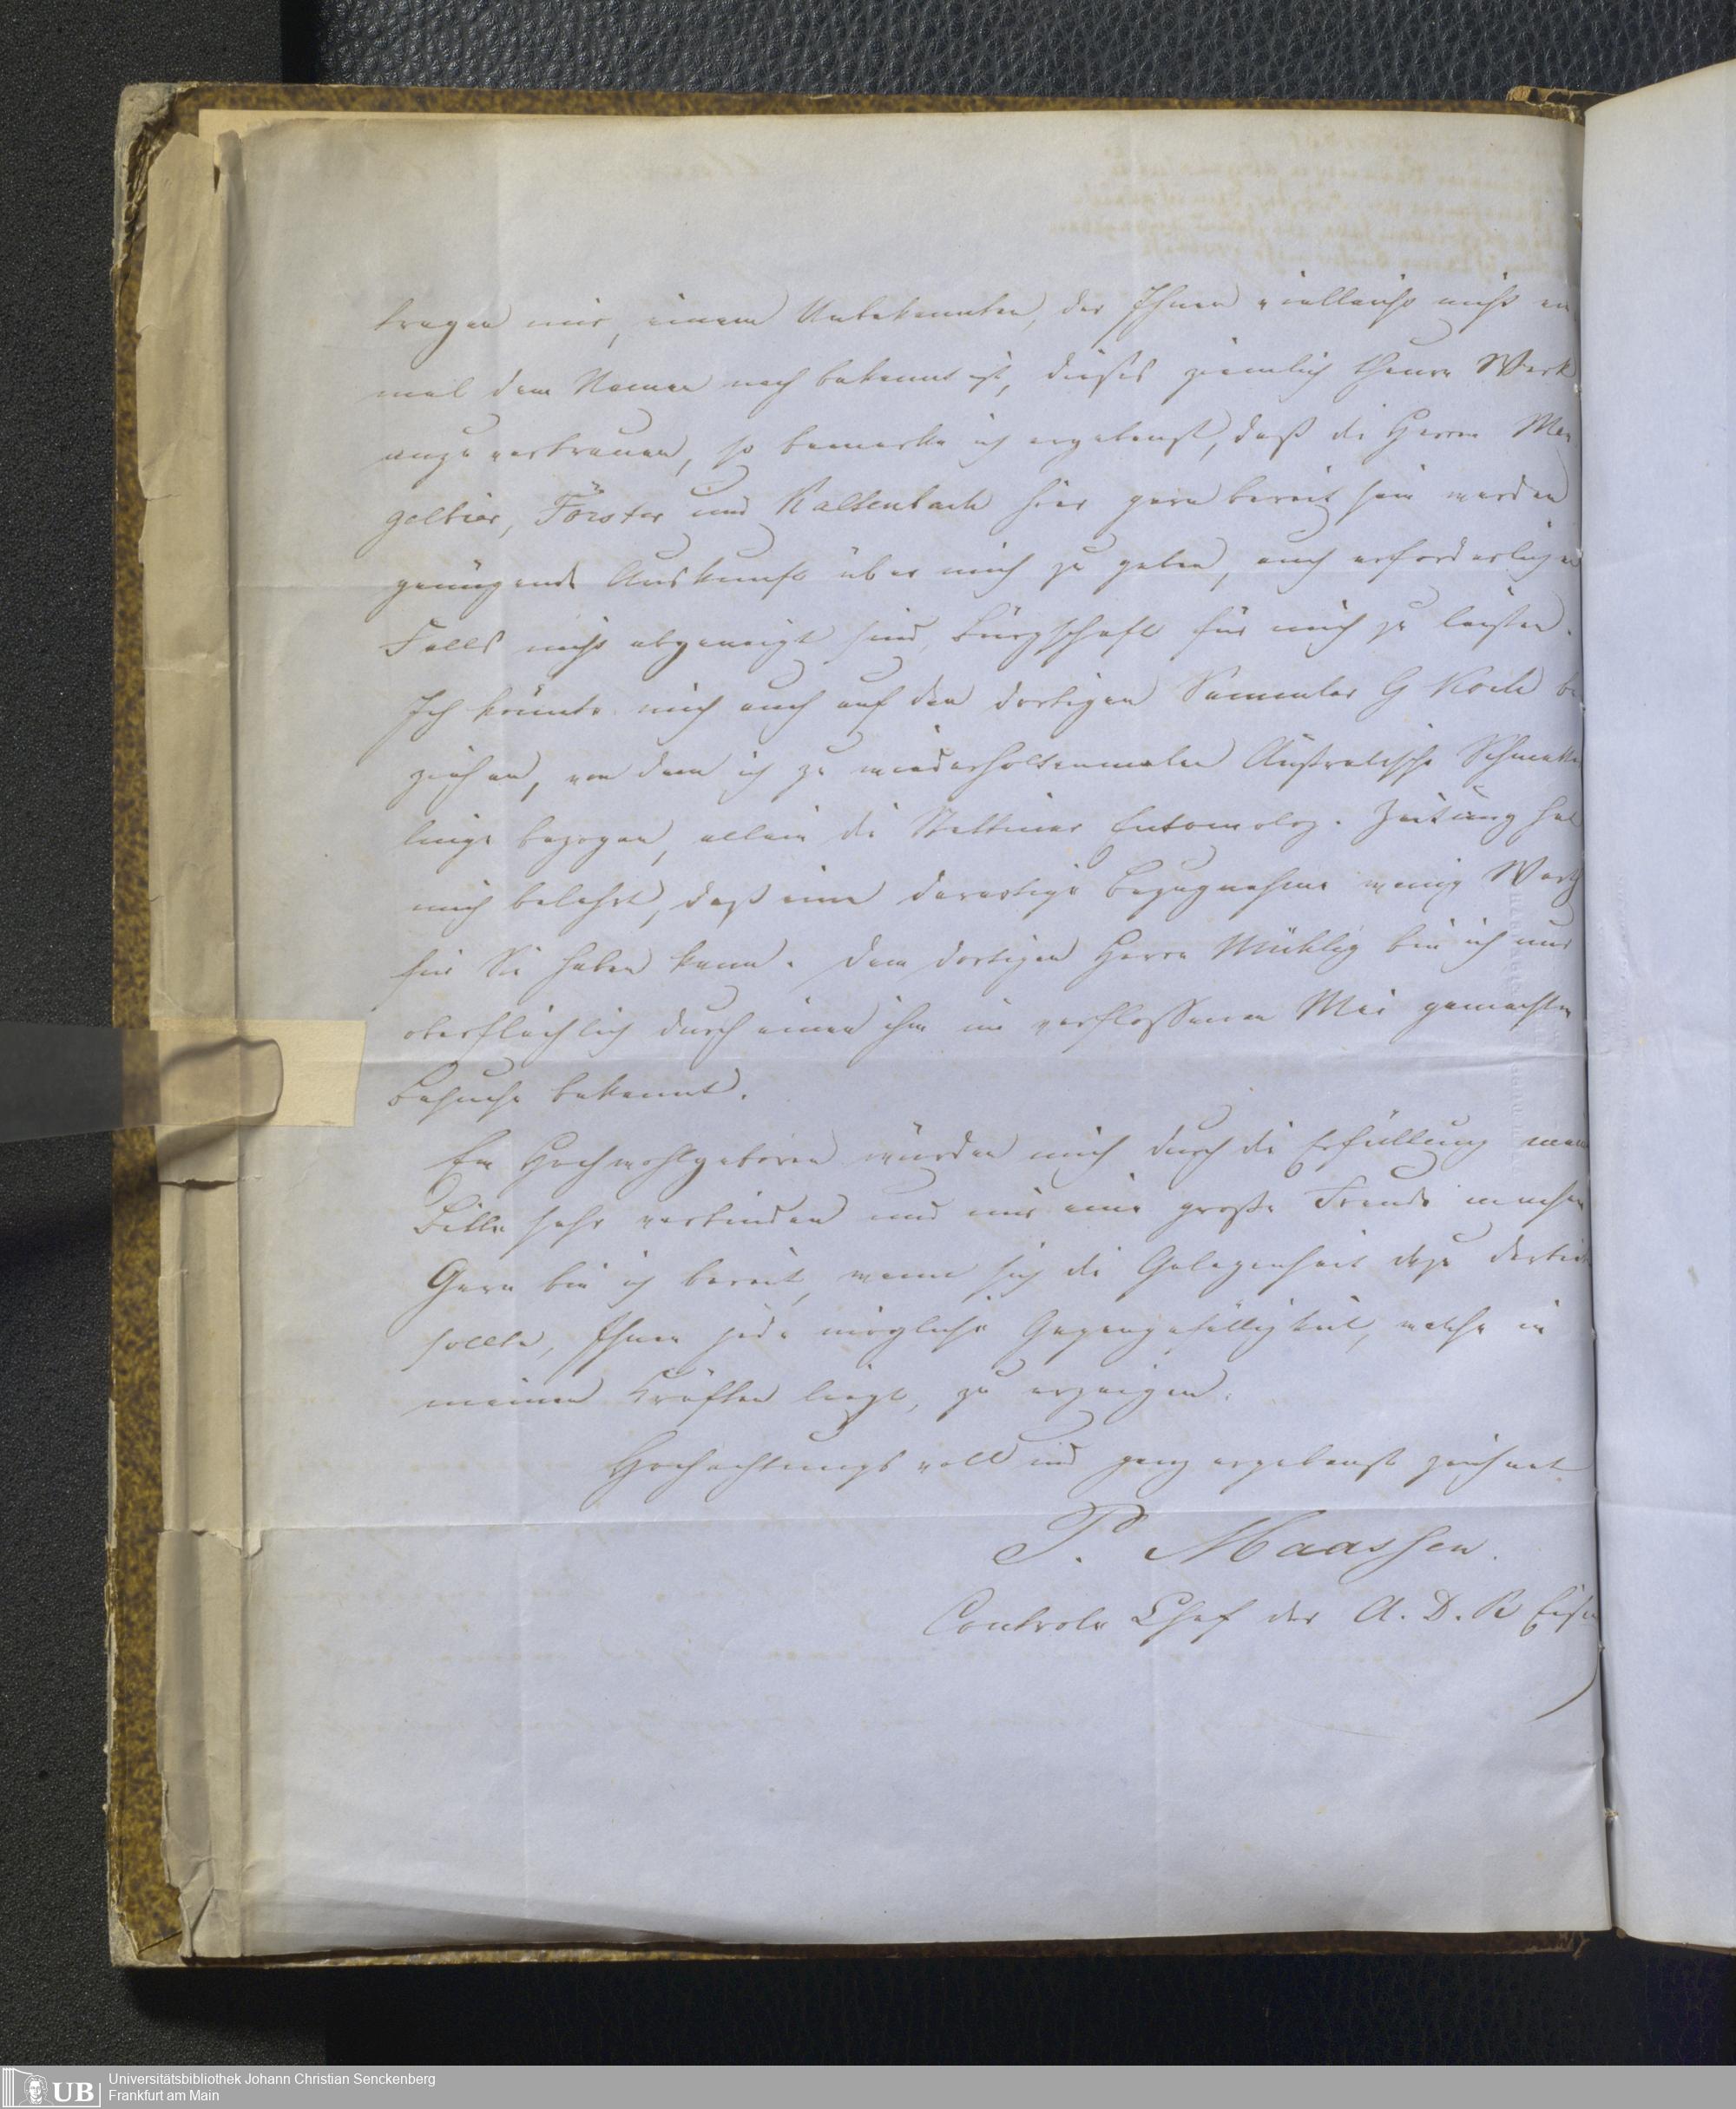 tragen mir, einem Unbekannten, der Ihnen vielleicht nicht ein
mal dem Namen nach bekannt ist, dieses ziemlich theure Werk
anzuvertrauen, so bemerke ich ergebenst, daß die Herren Men
gelbier, Förster und Kaltenbach hier gern bereit sein werden
genügende Auskunft über mich zu geben, auch erforderlichen
Falls nicht abgeneigt sind, Bürgschaft für mich zu leisten.
Ich könnte mich auch auf den dortigen Sammler G Koch be
ziehen, von dem ich zu wiederholtenmalen Australische Schmetter
linge bezogen, allein die Stettiner Entomolog. Zeitung hat
mich belehrt, daß eine derartige Bezugnahme wenig Werth
für Sie haben kann. Dem dortigen Herrn Mühlig bin ich nur
oberflächlich durch einen ihm im verflossenen Mai gemachten
Besuche bekannt.
Ew Hochwohlgeboren würden mich durch die Erfüllung meiner
Bitte sehr verbinden und mir eine große Freude machen
Gern bin ich bereit, wenn sich die Gelegenheit dazu darbieten
sollte, Ihnen jede mögliche Gegengefälligkeit, welche in
meinen Kräften liegt, zu erzeigen.
Hochachtungsvoll und ganz ergebenst zeichnet
P. Maassen.
Controle Chef der A. D. R Eisen
UB
Universitätsbibliothek Johann Christian Senckenberg
Frankfurt am Main